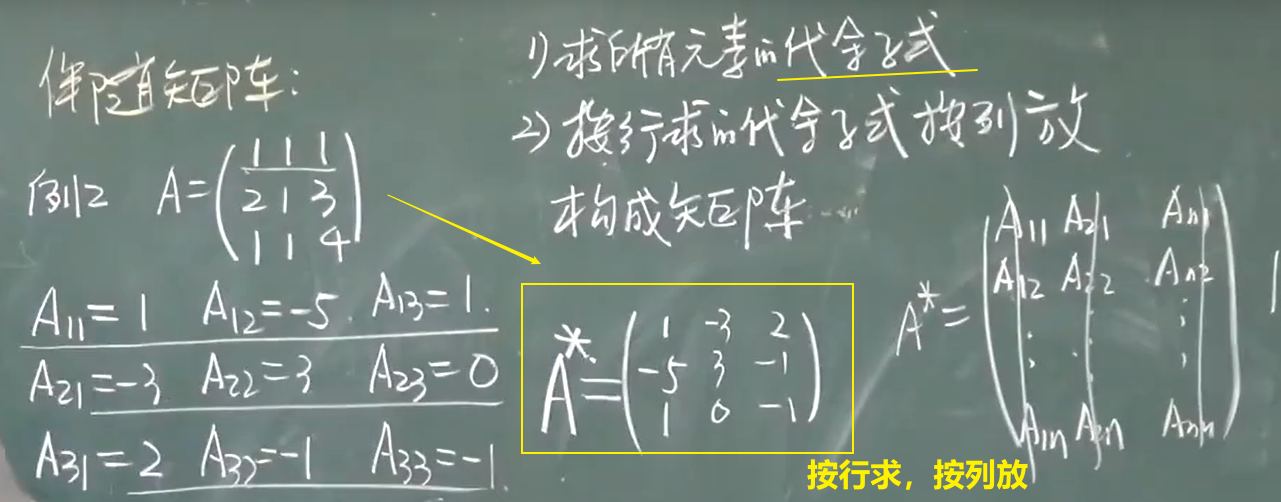 伴随矩阵:
例2 A=(1 1 1
2 1 3
1 1 4)
A₁₁=1 A₁₂=-5 A₁₃=1.
A₂₁=-3 A₂₂=3 A₂₃=0
A₃₁=2 A₃₂=-1 A₃₃=-1
1)求所有元素的代余子式
2)按行求的代余子式按列放
构成矩阵
A*=(1 -3 2
-5 3 -1
1 0 -1)
A*=(A₁₁ A₂₁ Aₙ₁
A₁₂ A₂₂ Aₙ₂
⋮ ⋮ ⋮
A₁ₙ A₂ₙ Aₙₙ)
按行求，按列放